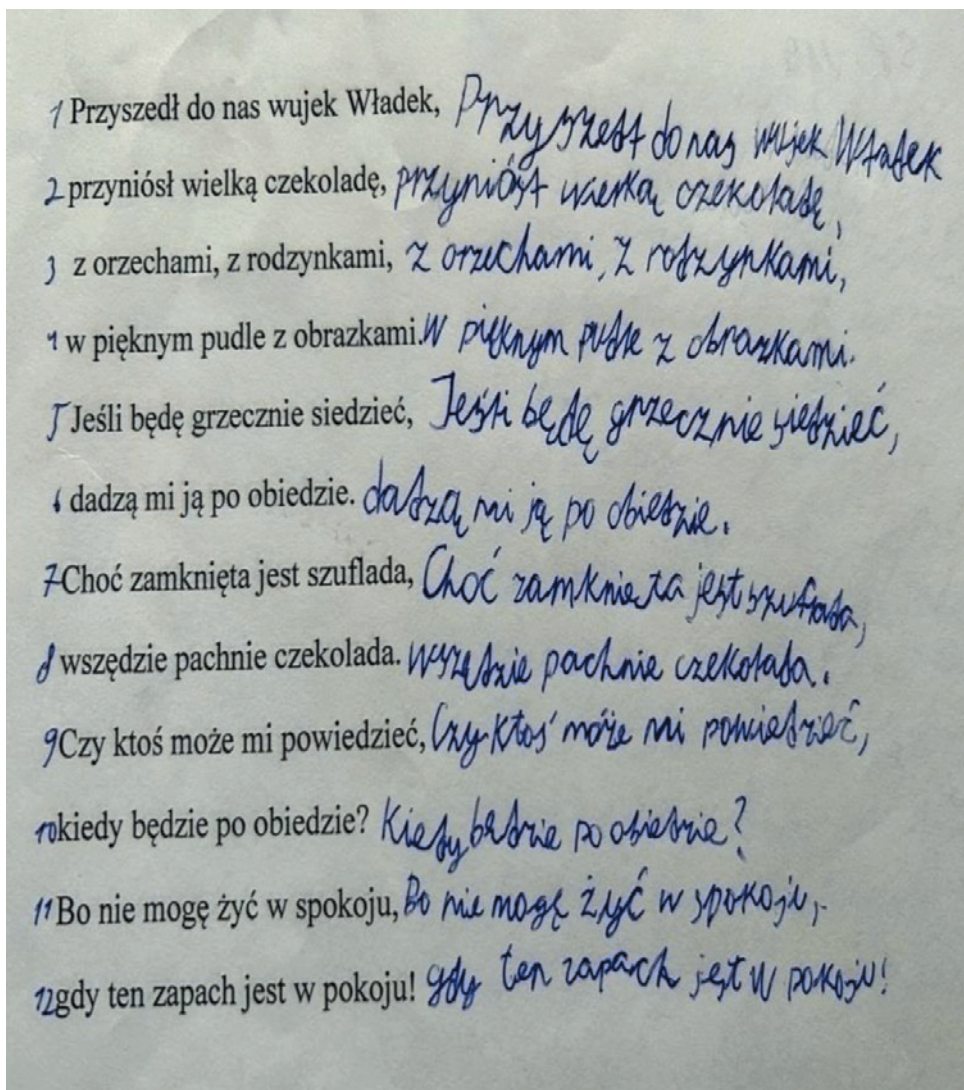 1 Przyszedł do nas wujek Władek, Przyszedł do nas wujek Władek
2 przyniósł wielką czekoladę, przyniósł wielką czekoladę,
3 z orzechami, z rodzynkami, z orzechami, z rodzynkami,
4 w pięknym pudle z obrazkami. W pięknym pudle z obrazkami.
5 Jeśli będę grzecznie siedzieć, Jeśli będę grzecznie siedzieć,
6 dadzą mi ją po obiedzie. dadzą mi ją po obiedzie.
7 Choć zamknięta jest szuflada, Choć zamknięta jest szuflada,
8 wszędzie pachnie czekolada. wszędzie pachnie czekolada.
9 Czy ktoś może mi powiedzieć, Czy ktoś może mi powiedzieć,
10 kiedy będzie po obiedzie? Kiedy będzie po obiedzie?
11 Bo nie mogę żyć w spokoju, Bo nie mogę żyć w spokoju,
12 gdy ten zapach jest w pokoju! gdy ten zapach jest w pokoju!